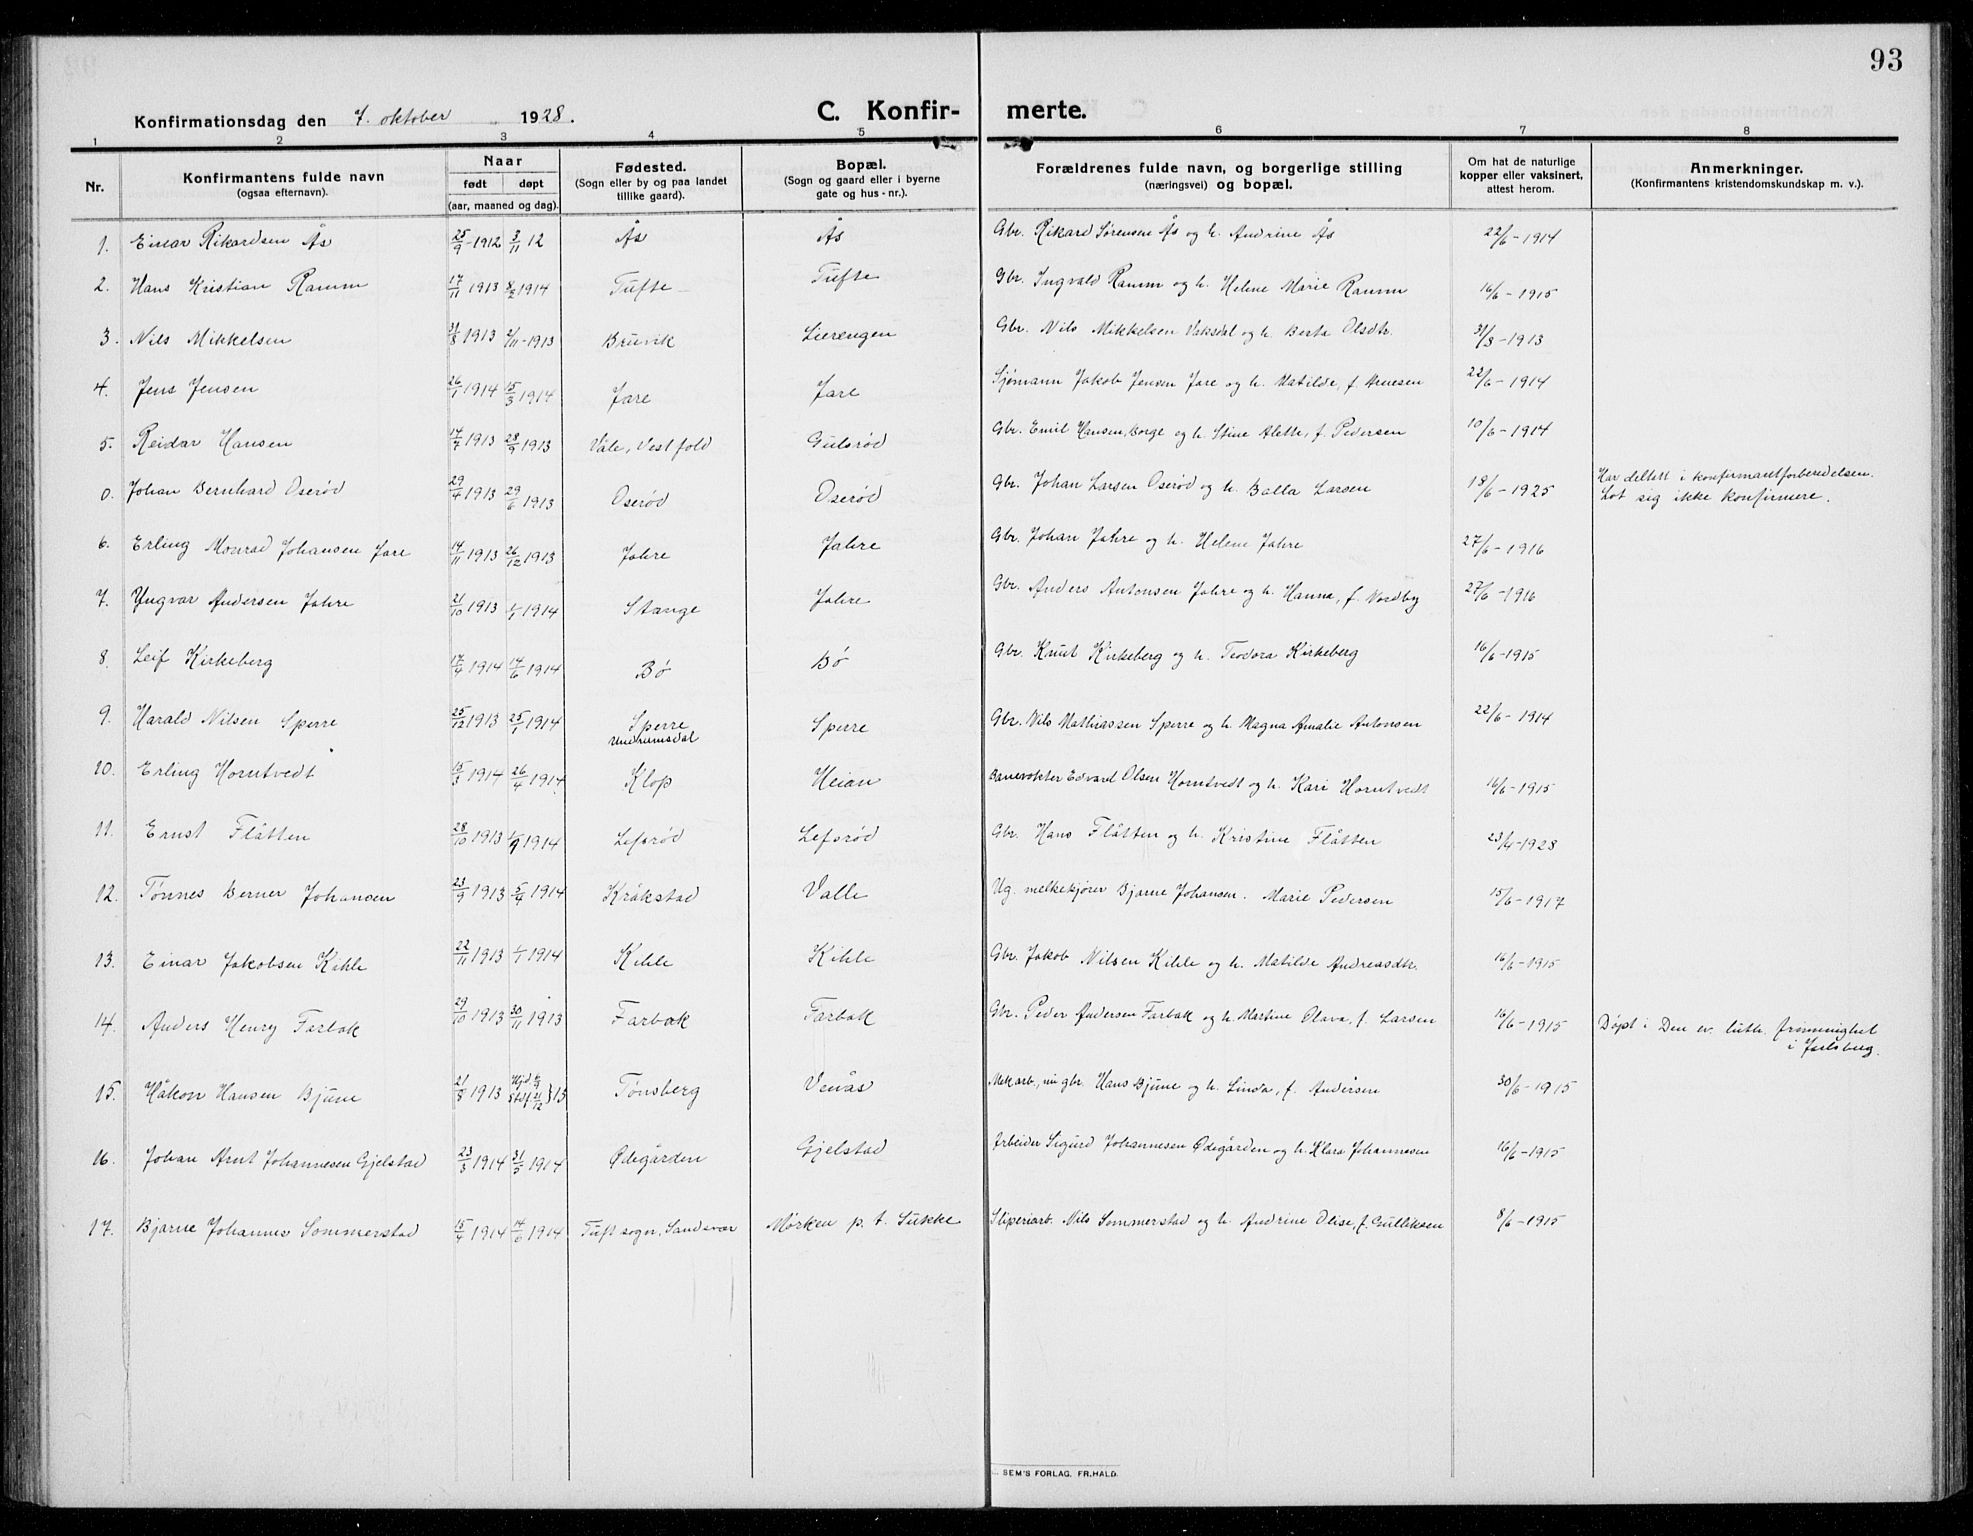 93
Konfirmationsdag den 7. oktober 1928.
C. Konfir- merte.
1 2 3 4 5 6 7 8
Nr.
Konfirmantens fulde navn
(ogsaa efternavn).
Naar
født døpt
(aar, maaned og dag).
Fødested.
(Sogn eller by og paa landet
tillike gaard).
Bopæl.
(Sogn og gaard eller i byerne
gate og hus - nr.).
Forældrenes fulde navn, og borgerlige stilling
(næringsvei) og bopæl.
Om hat de naturlige
kopper eller vaksinert,
attest herom.
Anmerkninger.
(Konfirmantens kristendomskundskap m. v.).
1. Einar Rikardsen Ås 25/9-1912 3/11 12 Ås Ås Gbr. Rikard Sørensen Ås og h. Andrine Ås 22/6-1914
2. Hans Kristian Ramm 17/11 1913 8/2 1914 Tufte Tufte Gbr. Ingvald Ramm og h. Helene Marie Ramm 16/6-1915
3. Nils Mikkelsen 31/8 1913 2/11-1913 Bruvik Lierengen Gbr. Nils Mikkelsen Vaksdal og h. Berta Olsdtr. 31/3-1913
4. Jens Jensen 26/1 1914 15/3 1914 Jare Jare Sjømann Jakob Jensen Jare og h. Matilde, f. Arnesen 22/6-1914
5. Reidar Hansen 14/7 1913 28/9 1913 Våle, Vestfold Gulsrød Gbr. Emil Hansen, Borge og h. Stine Aleth, f. Pedersen 10/6-1914
0. Johan Bernhard Oserød 29/4 1913 29/6 1913 Oserød Oserød Gbr. Johan Larsen Oserød og h. Balla Larsen 18/6-1925 Har deltatt i konfirmantforberedelsen.
Lot sig ikke konfirmere.
6. Erling Monrad Johansen Jare 14/11 1913 26/12 1913 Jahre Jahre Gbr. Johan Jahre og h. Helene Jahre 27/6-1916
7. Yngvar Andersen Jahre 21/10 1913 1/1 1914 Stange Jahre Gbr. Anders Antonsen Jahre og h. Hanna, f. Nordby 27/6-1916
8. Leif Kirkeberg 17/4 1914 14/6 1914 Bø Bø Gbr. Knut Kirkeberg og h. Teodora Kirkeberg 16/6-1915
9. Harald Nilsen Sperre 25/12 1913 25/1 1914 Sperre Sperre Gbr. Nils Mathiassen Sperre og h. Magna Amalie Antonsen 22/6-1914
Undrumsdal
10. Erling Horntvedt 15/3 1914 26/4 1914 Klop Heian Banevokter Edvard Olsen Horntvedt og h. Kari Horntvedt 16/6-1915
11. Ernst Flåtten 28/10 1913 1914 Lefsrød Lefsrød Gbr. Hans Flåtten og h. Kristine Flåtten 23/4-1928
12. Tønnes Berner Johansen 23/9 1913 5/4 1914 Kråkstad Valle Ug. melkekjører Bjarne Johansen. Marie Pedersen 15/6-1917
13. Einar Jakobsen Kihle 22/11 1913 1/1 1914 Kihle Kihle Gbr. Jakob Nilsen Kihle og h. Matilde Andreasdtr. 16/6-1915
14. Anders Henry Farbak 29/10 1913 30/11 1913 Farbak Farbak Gbr. Peder Andersen Farbak og h. Martine Olava, f. Larsen 16/6-1915 Døpt i Den ev. luth. frimenighet
i Jarlsberg.
15. Håkon Hansen Bjune 21/8 1913 Hjd. 6/9 Stdf. 21/12 }13 Tønsberg Venås Mek arb., nu gbr. Hans Bjune og h. Linda, f. Andersen 30/6-1915
16. Johan Arnt Johannesen Gjelstad 23/3 1914 31/5 1914 Ødegården Gjelstad Arbeider Sigurd Johannesen Ødegården og h. Klara Johannesen 16/6-1915
17. Bjarne Johannes Sommerstad 15/4 1914 14/6 1914 Tuft sogn, Sandsvær Mørken p. t. Sukke Sliperiarb. Nils Sommerstad og h. Andrine Olise, f. Gulliksen 8/6-1915
SEM'S FORLAG. FR.HALD.